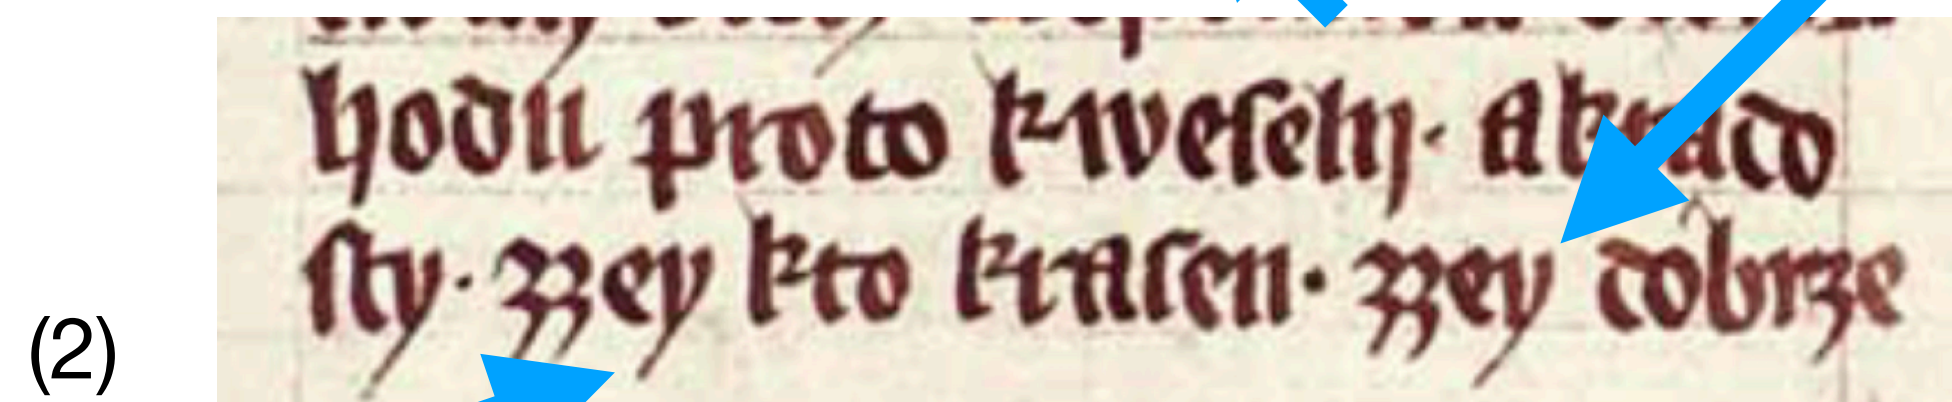 hodu proto kweſelij· Akrado
(2) ſty· zzey kto kraſen· zzey dobrze